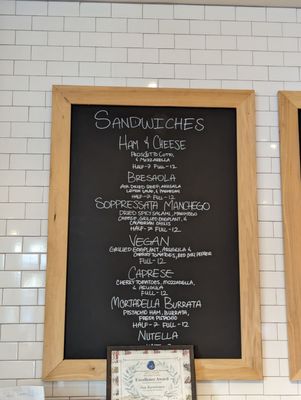 SANDWICHES
HAM & CHEESE
PROSCIUTTO COTTO,
& MOZZARELLA
HALF-7 FULL-12
BRESAOLA
AIR DRIED BEEF, ARUGULA
LEMON & PARMESAN
HALF-7 FULL-12
SOPPRESSATA MANCHEGO
DRIED SPICY SALAMI, MANCHEGO
CHEESE, GRILLED EGGPLANT, &
CALABRIAN CHILIS
HALF-7 FULL-12
VEGAN
GRILLED EGGPLANT, ARUGULA &
CHERRY TOMATOES, RED BELL PEPPER
FULL-12
CAPRESE
CHERRY TOMATOES, MOZZARELLA,
& ARUGULA
FULL-12
MORTADELLA BURRATA
PISTACHIO HAM, BURRATA,
FRESH PISTACHIO
HALF-7 FULL-12
NUTELLA
Excellence Award